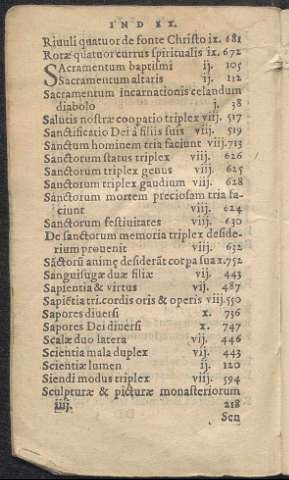 INDEX.
Riuuli quatuor de fonte Christo ix. 681
Rotæ quatuor currus spiritualis ix. 672
SAcramentum baptismi ij. 105
Sacramentum altaris ij. 112
Sacramentum incarnationis celandum
diabolo j. 38
Salutis nostræ cooпatio triplex viij. 517
Sanctificatio Dei à filiis suis viij. 519
Sanctum hominem tria faciunt viij. 713
Sanctorum status triplex viij. 626
Sanctorum triplex genus viij. 625
Sanctorum triplex gaudium viij. 628
Sanctorum mortem preciosam tria fa-
ciunt viij. 624
Sanctorum festiuitates viij. 630
De sanctorum memoria triplex deside-
rium prouenit viij. 632
Sāctorū animę desiderāt corpa sua x. 752
Sanguisugæ duæ filiæ vij. 443
Sapientia & virtus vij. 487
Sapiētia tri. cordis oris & operis viij. 550
Sapores diuersi x. 736
Sapores Dei diuersi x. 747
Scalæ duo latera vij. 446
Scientia mala duplex vij. 443
Scientiæ lumen ij. 120
Siendi modus triplex viij. 594
Sculpturæ & picturæ monasteriorum
iiij. 218
Scu